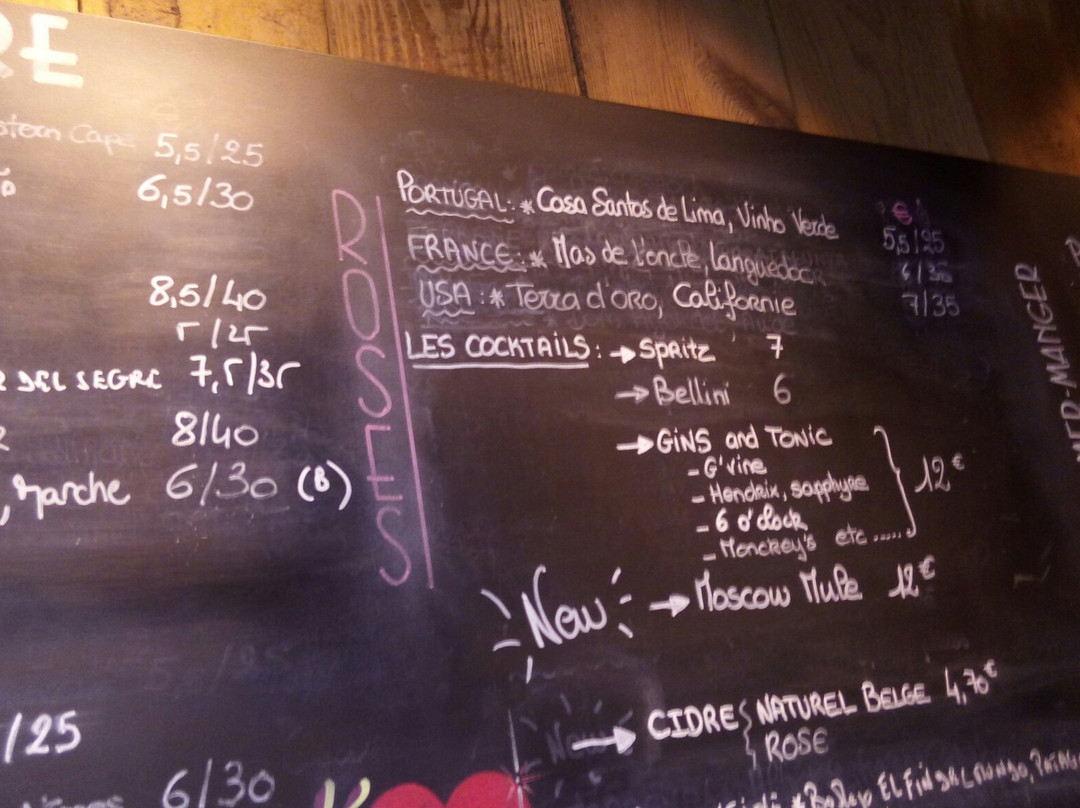 RE
Cape 5,5/25
6,5/30
8,5/40
5/25
DEL SEGRE 7,5/35
8/40
, Marche 6/30 (B)
/25
6/30
ROSES
PORTUGAL: * Casa Santos de Lima, Vinho Verde 5,5/25
FRANCE: * Mas de l'oncle, languedoc 6/30
USA: * Terra d'oro, Californie 7/35
LES COCKTAILS: → Spritz 7
→ Bellini 6
→ GiNS and TONIC
- G'vine
- Hendrix, sapphyre
- 6 o'clock
- Monckey's etc ......
12€
New → Moscow Mule 12€
New → CIDRE { NATUREL BELGE 4,70€
ROSE
EL FIN DEL MUNDO,
MANGER